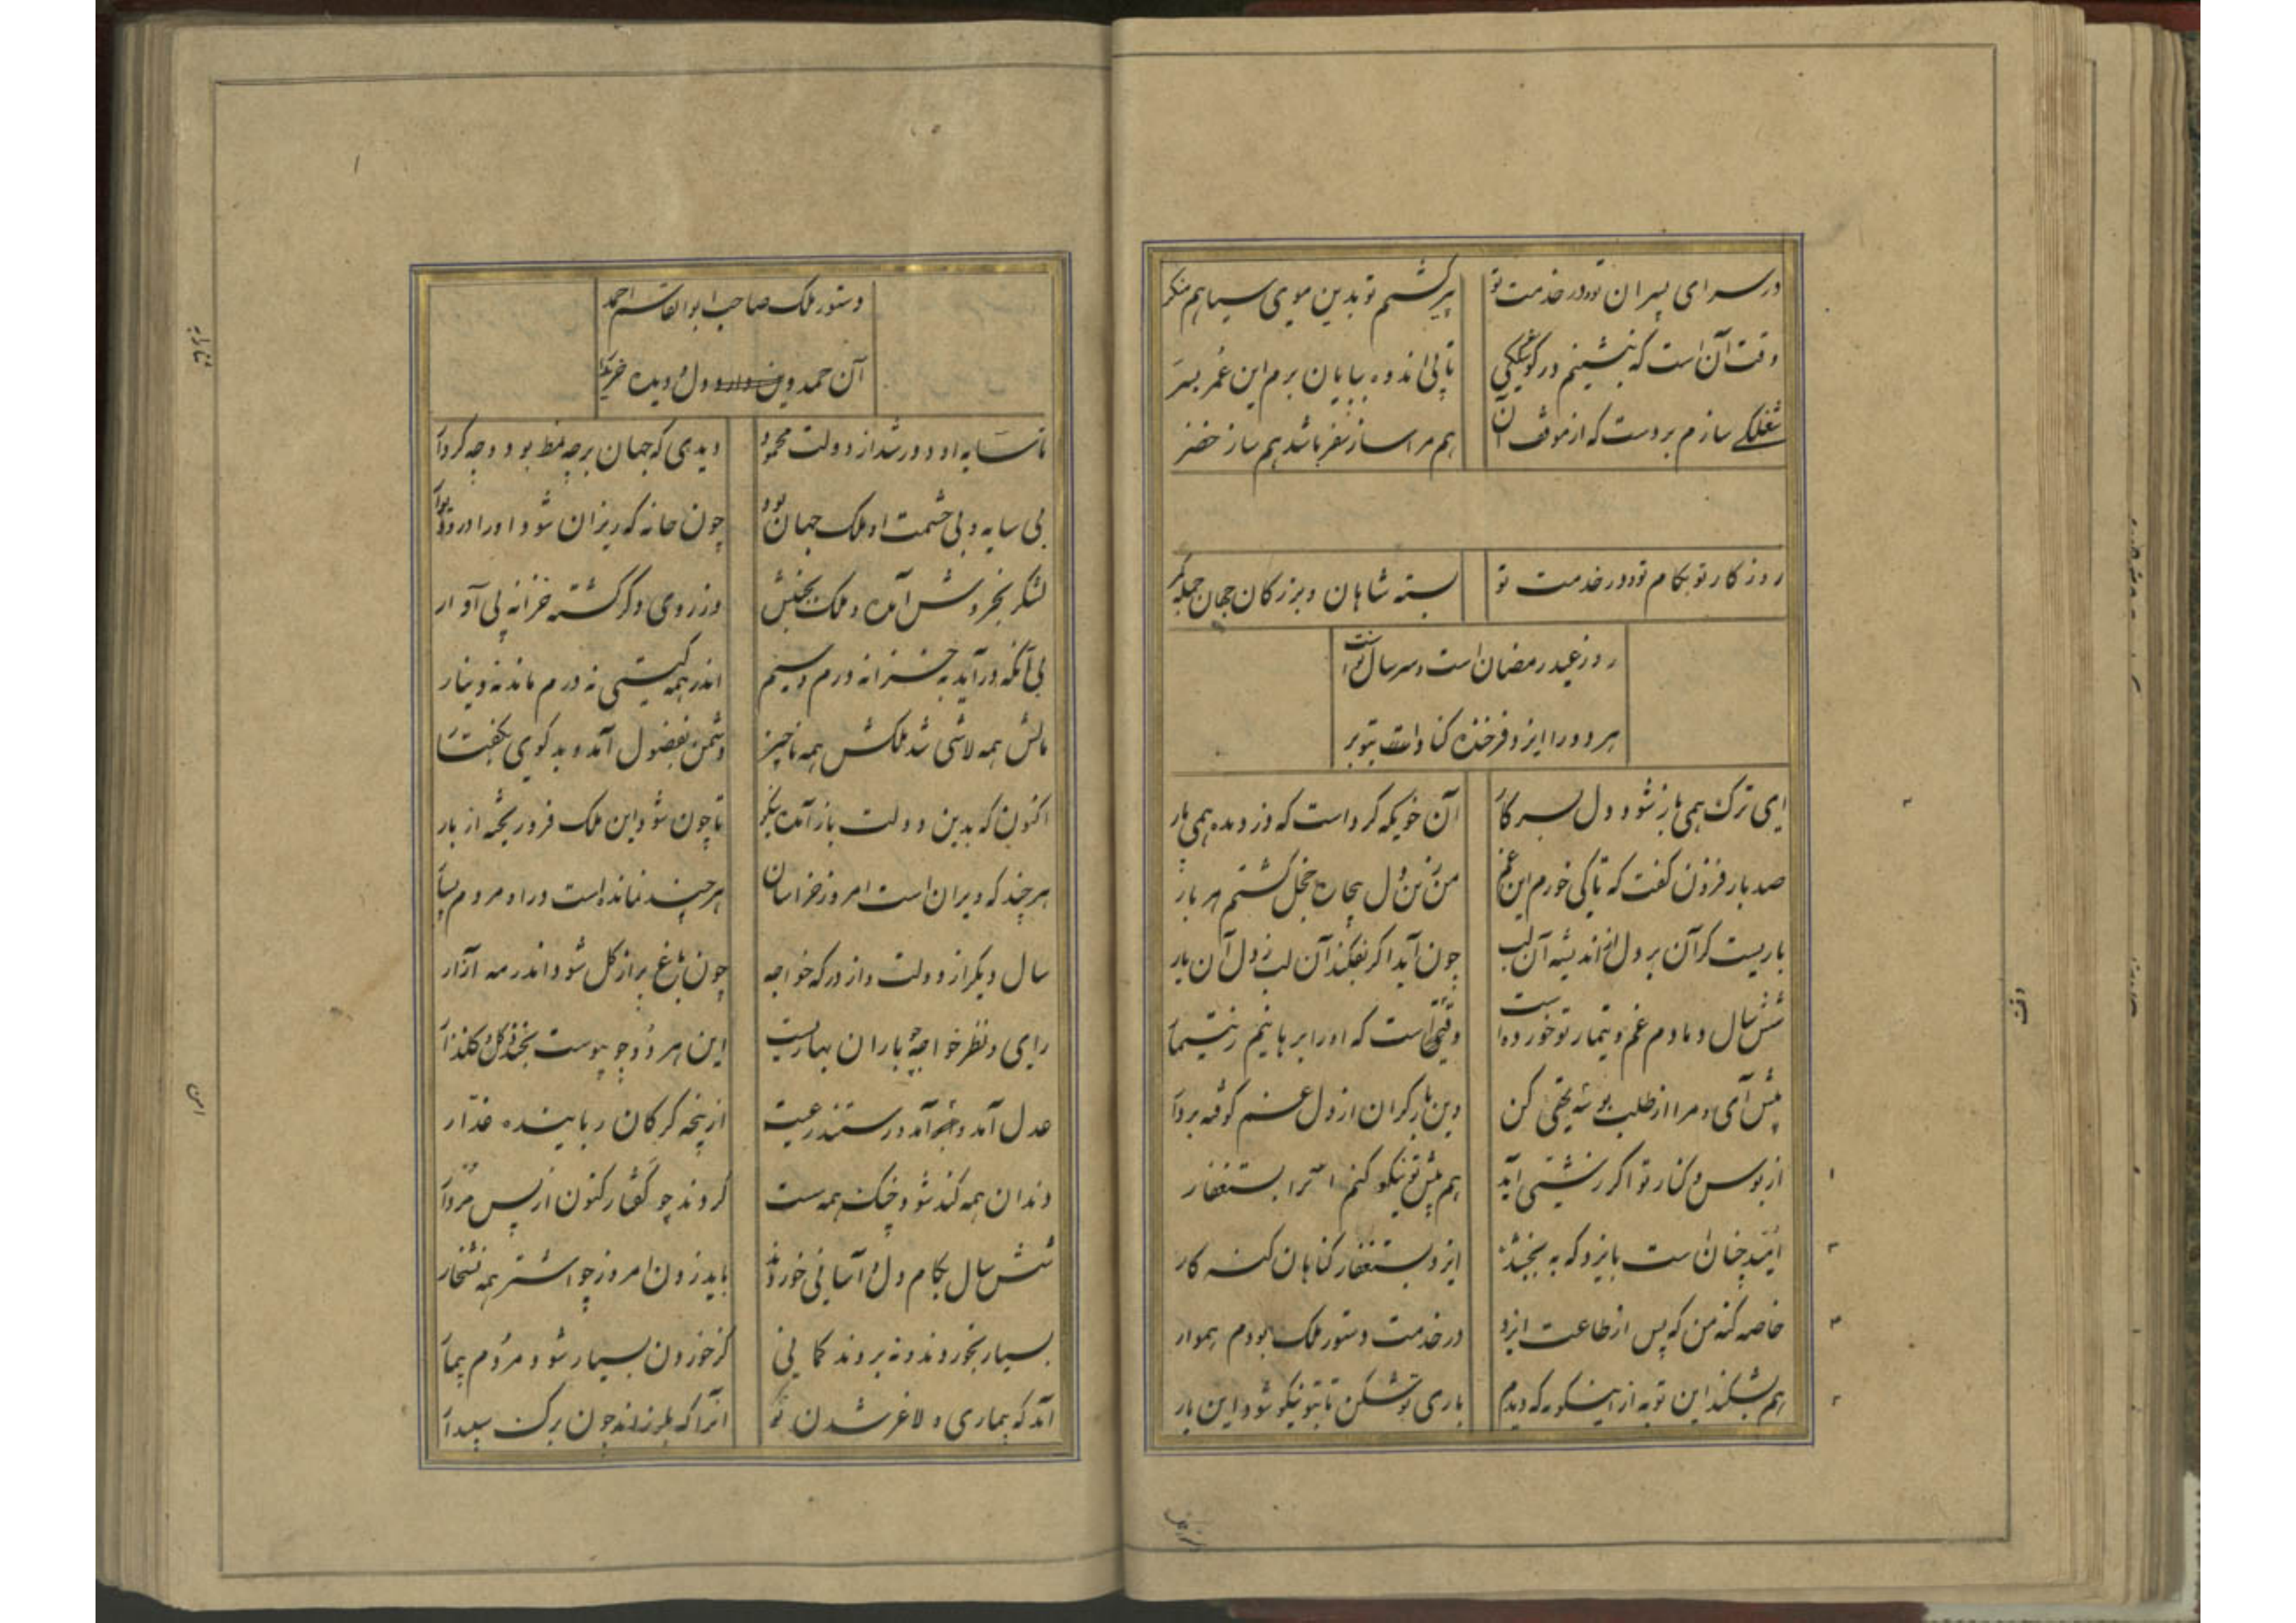 در سرای پسران تو و در خدمت تو
پیر گشتم تو بدین موی سیاهم منگر
وقت آن است که بنشینم در گوشگکی
تا پی اندوه بپایان برم این عمر بسر
شغلکی سازم بر دست که از موقف آن
هم مرا ساز سفر باشد هم ساز حضر
روزگار تو بکام تو و در خدمت تو
بسته شاهان و بزرگان جهان جمله کمر
روز عید رمضان است و سر سال نو است
هر دو را ایزد فرخنده کناد است بتو بر
ای ترک همی باز شود دل بسر کار
آن خو یکه کرد است که دزدیده همی بار
صد بار فزون گفت که تا کی خورم این غم
من زین دل بیچاره خجل گشتم هر بار
باریست گران بر دل از اندیشه آن لب
چون آید اگر بفکند آن لب ز دل آن بار
شش سال دمادم غم و تیمار تو خورده است
وقتی است که او را برهانیم ز تیمار
پیش آی و مرا از طلب بوسه تهی کن
وین بار گران از دل غم کوفته بردار
از بوس و کنار تو اگر زشتی آید
هم پیش تو نیکو کنم آنرا بستغفار
امید چنان است بایزد که ببخشد
ایزد بستغفار گناهان گنه کار
خاصه گنه من که پس از طاعت ایزد
در خدمت دستور ملک بودم هموار
هم بشکند این توبه از اینگونه که دیدم
باری تو شکن تا بتو نیکو شود این بار
دستور ملک صاحب ابوالقاسم احمد
آن حمد و دل و دیده
تا سایه او دور شد از دولت محمود
دیدی که جهان بر چه نمط بود و چه کردار
بی سایه و بی حشمت او ملک جهان بود
چون خانه که ریزان شود او را در و دیوار
لشکر بخروش آمده و ملک بجنبش
وز روی دگر گشته خزانه پی آوار
بی آنکه در آید به خزانه درم و سیم
اندر همه گیتی نه درم ماند نه دینار
مالش همه لاشی شد ملکش همه ناچیز
دشمن بفضول آمد و بدگوی بگفتار
اکنون که بدین دولت باز آمد بنگر
تا چون شود این ملک فرو ریخته از بار
هر چند که ویران است امروز خراسان
هر چند نمانده است در او مردم بسیار
سال دیگر از دولت و از درگه خواجه
چون باغ پر از گل شود اندر مه آزار
رای و نظر خواجه چو باران بهاریست
این هر دو چو پیوست بخندد گل گلزار
عدل آمد و امن آمد و رستند رعیت
از پنجه گرگان رباینده غدار
دندان همه کند شود چنگ همه سست
گردند چو کفتار کنون از پس مردار
شش سال بکام دل و آسانی خوردند
باید زدن امروز چو اشتر همه نشخار
بسیار بخوردند و نبردند گمانی
کز خوردن بسیار شود مردم بیمار
آمد گه بیماری و لاغر شدن
آنرا که بلرزند چون برگ سپیدار